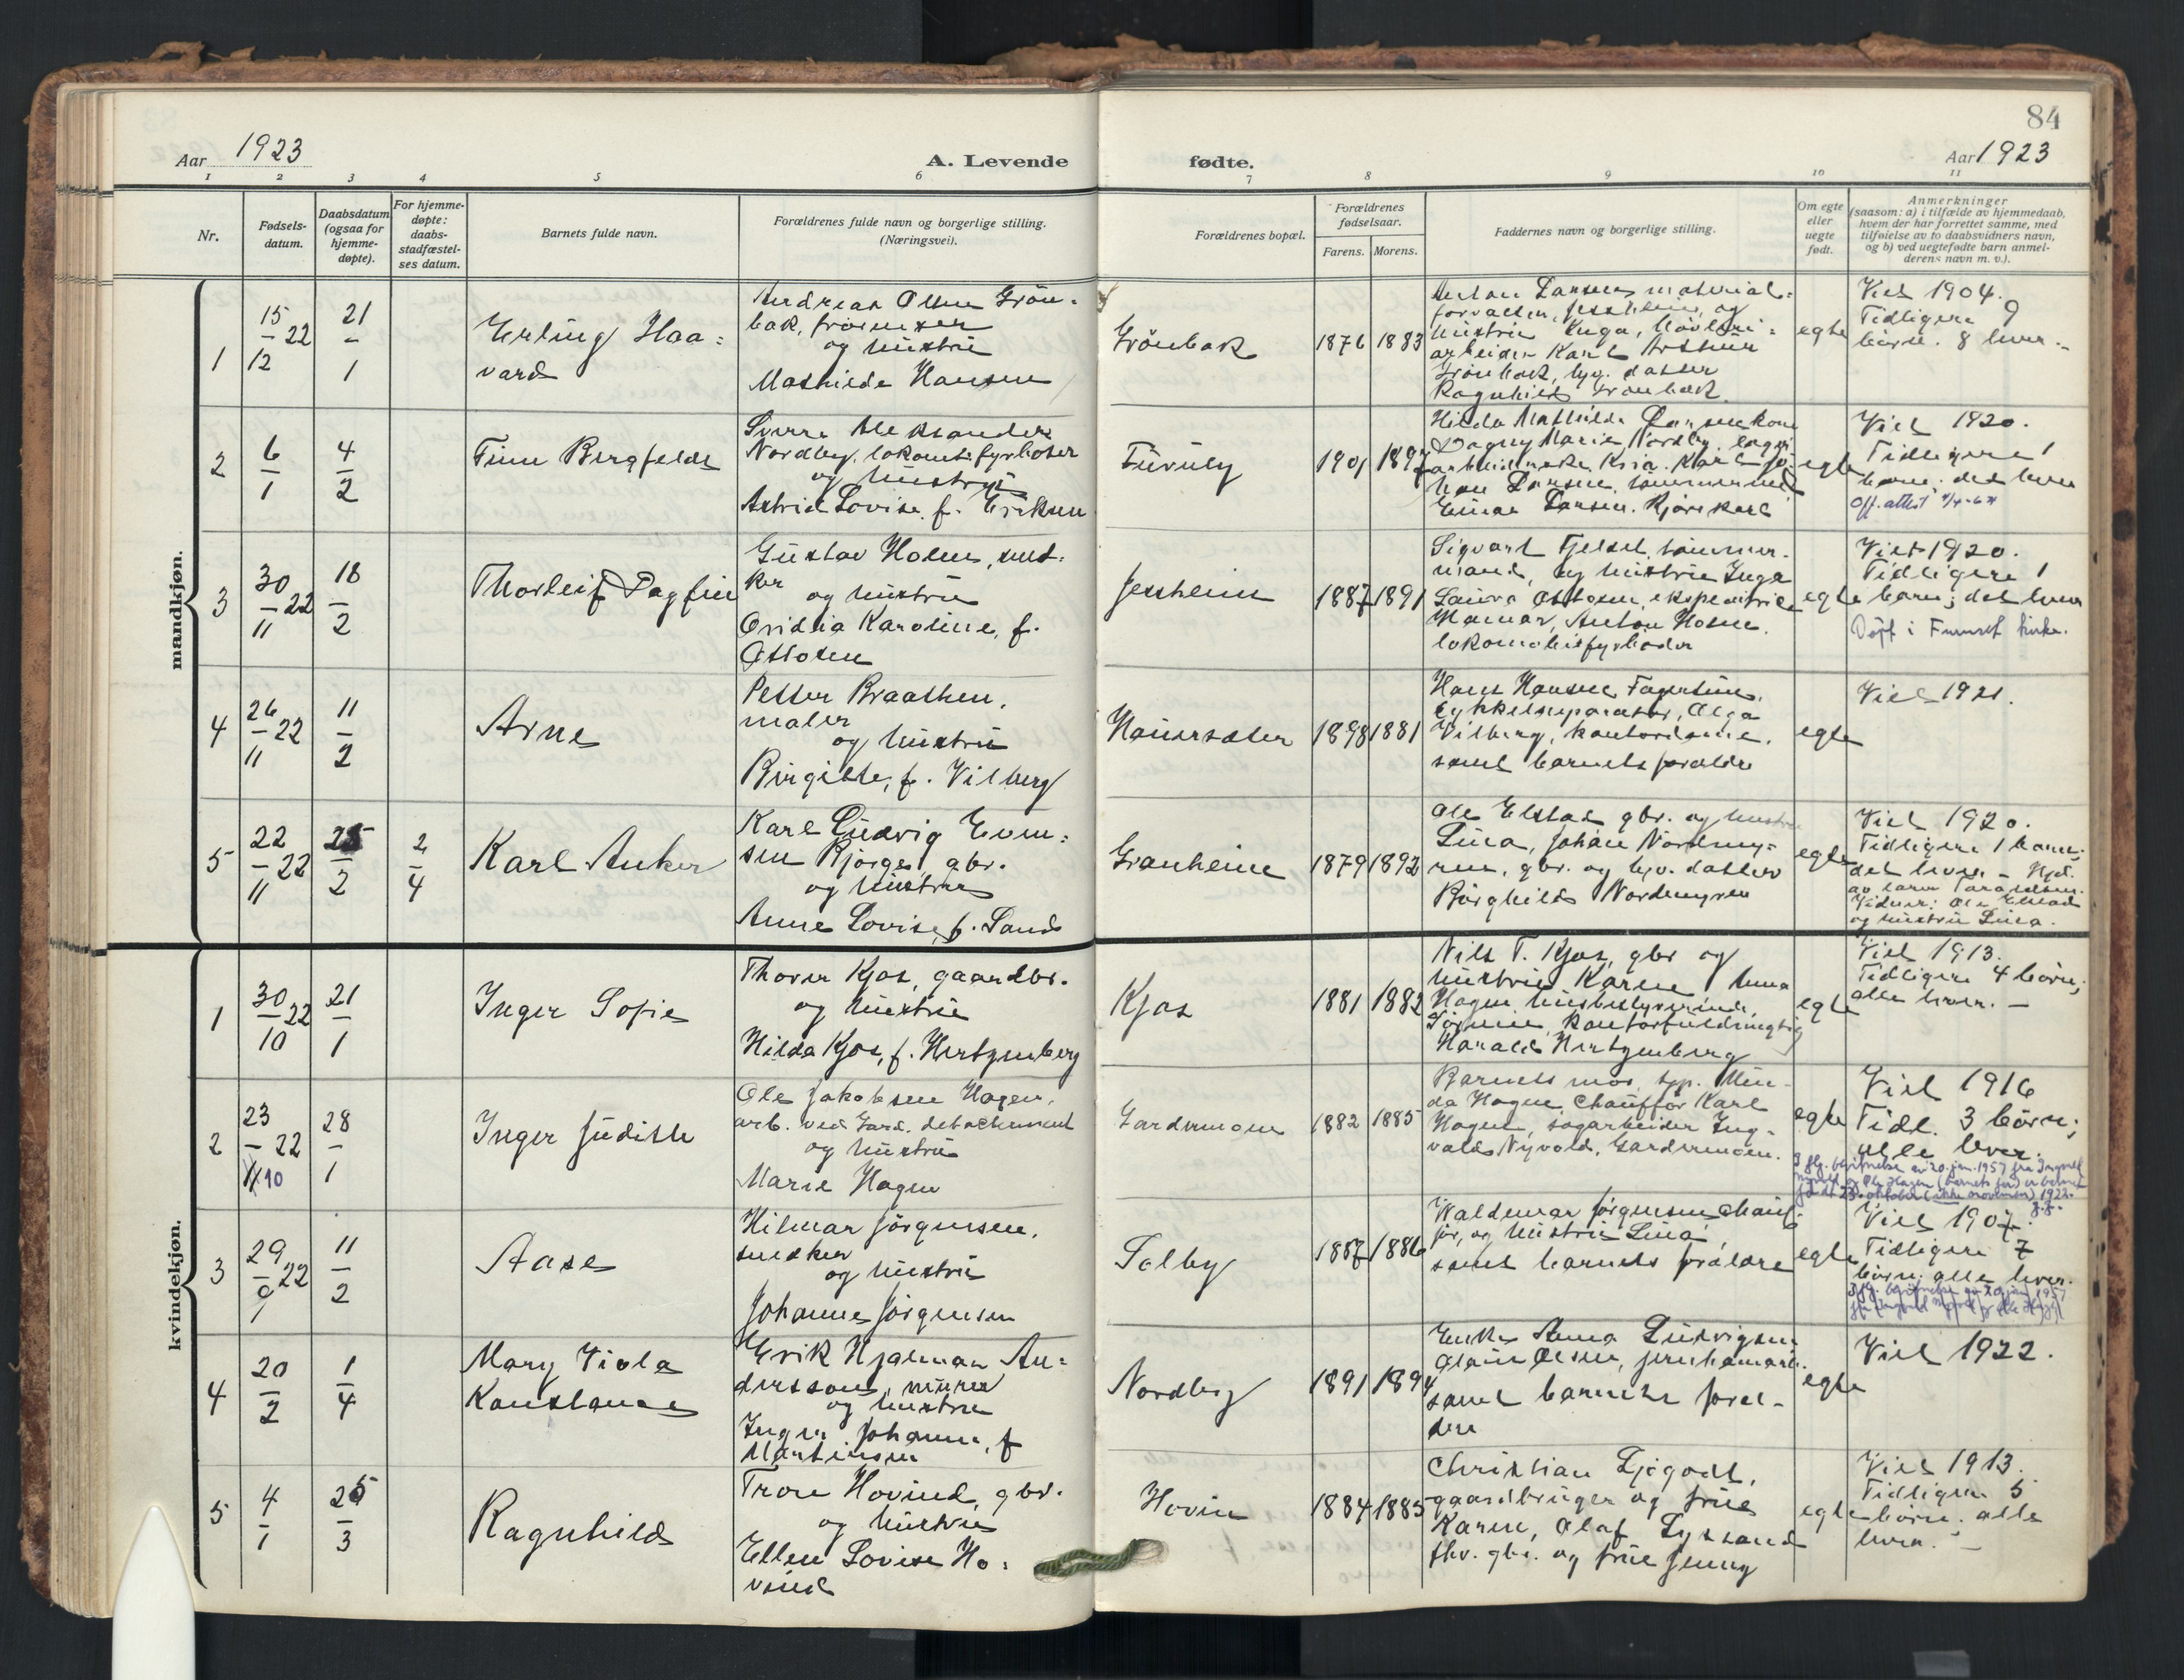 84
Aar 1923
A. Levende
fødte.
Aar 1923
1 2 3 4 5 6 7 8 9 10 11
Nr.
Fødsels-
datum.
Daabsdatum
(ogsaa for
hjemme-
døpte).
For hjemme-
døpte:
daabs-
stadfæstel-
ses datum.
Barnets fulde navn.
Forældrenes fulde navn og borgerlige stilling.
(Næringsvei).
Forældrenes bopæl.
Forældrenes
fødselsaar.
Farens. Morens.
Faddernes navn og borgerlige stilling.
Om egte
eller
uegte
født.
Anmerkninger
(saasom: a) i tilfælde av hjemmedaab,
hvem der har forrettet samme, med
tilføielse av to daabsvidners navn,
og b) ved uegtefødte barn anmel-
derens navn m. v.).
mandkjøn.
1
15/12 22
21/1
Erling Haa=
vard
Andreas Olsen Grön-
bak,
og hustru
Mathilde Hansen
Grönbak
1876 1883
Anton Larsen material-
forvalter, Jessheim, og
hustru Inga,
arbeider Karl Arthur
Grönbak, tyg. datter
Ragnhild Grönbak
egte
Viet 1904.
Tidligere 9
börn. 8 lever.
2
6/1
4/2
Finn Bergfeldt
Sverre Aleksander
Nordby, lokomotivfyrböter
og hustru
Astrid Lovise, f. Eriksen
Furuly
1901 1897
Hilda Mathilde Larsen kone
Dagny Marie Nordby,
arbeiderske Kria. Karl Jo-
han Larsen, tömmermand
Einar Larsen. Kjörekarl
egte
Viet 1920.
Tidligere 1
barn; det lever
Off. attest
3
30/11 22
18/2
Thorleif Dagfin
Gustav Holm, sned-
ker
og hustru
Ovidia Karoline, f.
Ottosen
Jessheim
1887 1891
Sigvart Fjeldel, tömmer-
mand, og hustru Inga
Laura Ottosen, ekspeditrice
Hamar, Anton Holm.
lokomotivfyrböder
egte
Viet 1920.
Tidligere 1
barn; det lever
Döpt i Furuset kirke.
4
26/11 22
11/2
Arne
Petter Braathen,
maler
og hustru
Birgitte, f. Vilberg
Hauersæter
1898 1881
Hans Hansen Fagertun,
cykkelreparatör, Olga
Vilberg, kontordame,
samt barnets foraldre
egte
Viet 1921.
5
22/11 22
25/2
2/4
Karl Anker
Karl Ludvig Even=
sen Bjorge, gbr.
og hustru
Anne Lovise, f. Sand
Granheim
1879 1892
Ole Elstad gbr. og hustru
Lina, Johan Nordmy-
ren, gbr. og tyv. datter
Borghild Nordmyren
egte
Viet 1920.
Tidligere 1 barn;
det lever. – Hjd.
av lærer Taraldsen.
Vidner: Ole Elstad
og hustru Lina.
kvindekjøn.
1
30/10 22
21/1
Inger Sofie
Thorer Kjos, gaardbr.
og hustru
Hilda Kjos, f. Hertzenberg
Kjos
1881 1882
Nils T. Kjos, gbr og
hustru Karen Anna
Hagen husbestyrerinde,
kontorfuldmægtig
Harald Hertzenberg
egte
Viet 1913.
Tidligere 4 börn;
alle lever. –
2
23/11 10 22
28/1
Inger Judith
Ole Jakobsen Hagen,
arb. ved Gard. detachement
og hustru
Marie Hagen
Gardermoen
1882 1885
Barnets mor, tyv. Min-
da Hagen, Chauffør Karl
Hagen, sagarbeider Ing-
vald Nyvold, Gardermoen.
egte
Viet 1916
Tidl. 3 börn;
alle lever.
I flg. bevitnelse av 20. jan. 1957 fra Ingvald
Nyvold og Ole Hagen (barnets far) er barnet
født 23. oktober (ikke november) 1922.
3
29/9 22
11/2
Aase
Hilmar Jörgensen,
snedker
og hustru
Johanne Jörgensen
Solby
1887 1886
Waldemar Jörgensen chauf-
för, og hustru Lina,
samt barnets foraldre
egte
Viet 1907.
Tidligere 7
börn; alle lever.
I flg. bevitnelse av 20 jan 1957
fra Ingvald Nyvold og Ole Hagen
4
20/2
1/4
Mary Viola
Konstance
Erik Hjalmar An=
derssons, murer
og hustru
Inger Johanne, f
Martinsen
Nordberg
1891 1894
Enke Anna Ludvigsen,
Olaus Olsen, jernbanearb.
samt barnets forel-
dre
egte
Viet 1922.
5
4/1
25/3
Ragnhild
Tron Hovind, gbr.
og hustru
Ellen Lovise Ho=
vind
Hovin
1884 1885
Christian Ljögodt,
gaardbruger og frue
Karen, Olaf Lysaand
fhv. gbr. og frue Jenny
egte
Viet 1913.
Tidligere 5
börn; alle
lever. –